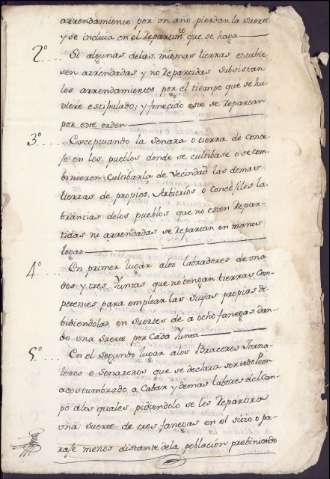 arrendamiento por un año pierdan la suerte
y se incluia en el repartim.to que se haga
2º Si algunas delas mismas tierras estubie
sen arrendadas y no repartidas subsistan
los arrendamientos por el tiempo que se hu
viere estipulado; y fenecido este se repartan
por este orden
3º Exceptuando la Senara o tierra de Conce
jo en los pueblos donde se cultibare o se com
binieren Cultibarla de Vecindad las demas
tierras de propios, Arbitrios o Concejiles la
brantias delos pueblos que no esten repar
tidas ni arrendadas se repartan en manos
legas
4º En primer lugar alos labradores de una
dos y tres Yuntas que no tengan tierras Com
petentes para emplear las suyas propias di
bidiendolas en suertes de a ocho fanegas dan
do una suerte por Cada Yunta
5º En el segundo lugar alos Braceros Jorna
leros o Senareros que se declara ser
acostumbrado a Cabar y demas labores del Cam
po alos quales pidiendolo se les repartira
una suerte de tres fanegas en el sitio o pa
raje menos distante dela poblacion prebiniendo